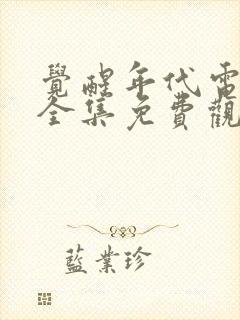 覺醒年代電
全集免費觀
藍業珍